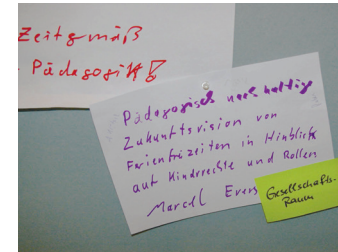 Zeitgmäß
Pädagogik!
Pädagogisch nachhaltige
Zukunftsvision von
Ferienfreizeiten in Hinblick
auf Kinderrechte und Rollen
Marcel Evers
Gesellschafts-
Raum